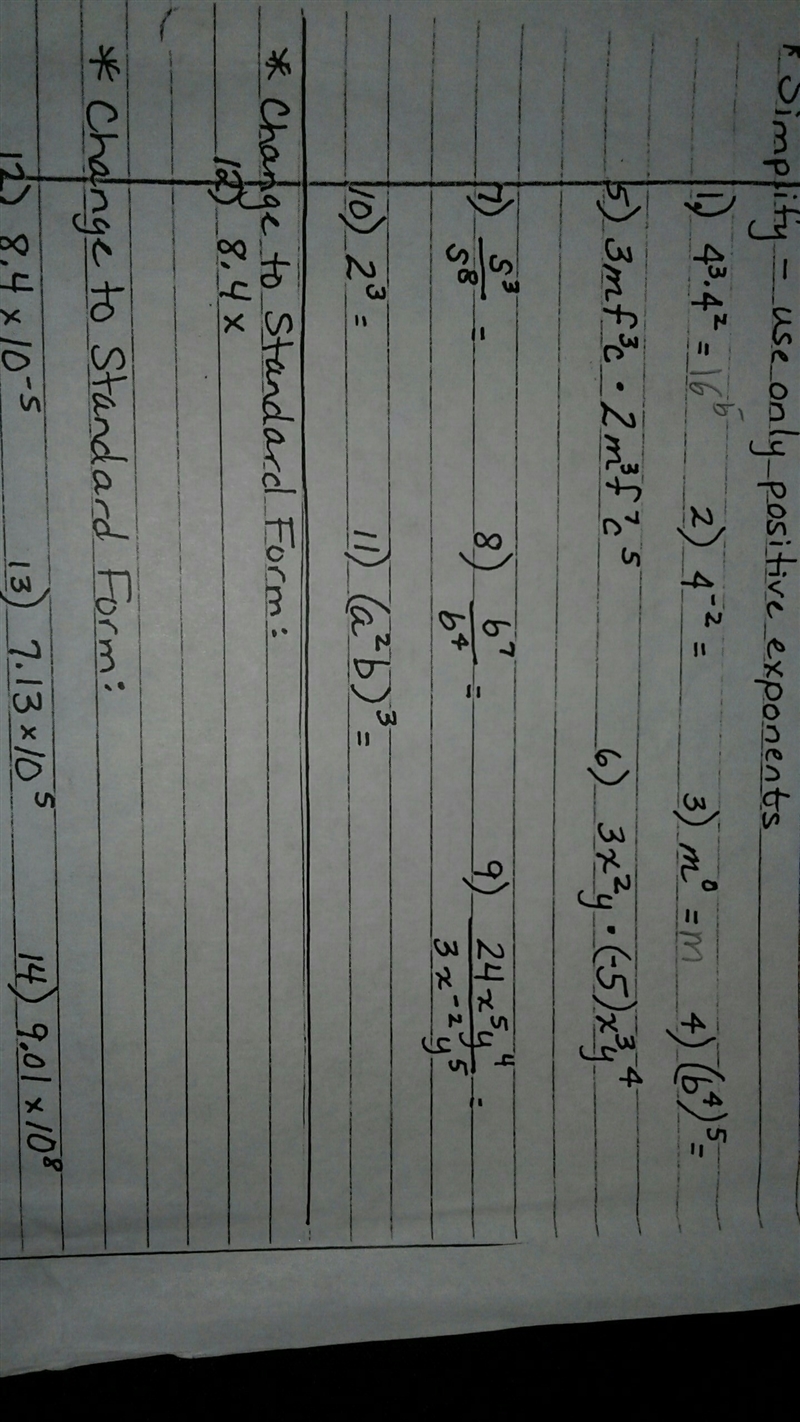 * Simplify - use only positive exponents
1) 4³·4² = 16⁵ 2) 4⁻² = 3) m⁰ = m 4) (b⁴)⁵ =
5) 3mf³c · 2m³f⁷c⁵ 6) 3x²y · (-5)x³y⁴
7) s³/s⁸ = 8) b⁷/b⁴ = 9) 24x⁵y⁴/3x⁻²y⁵ =
10) 2³ = 11) (a²b)³ =
* Change to Standard Form:
12) 8.4 x
* Change to Standard Form:
12) 8.4 x 10⁻⁵ 13) 7.13 x 10⁵ 14) 9.01 x 10⁸